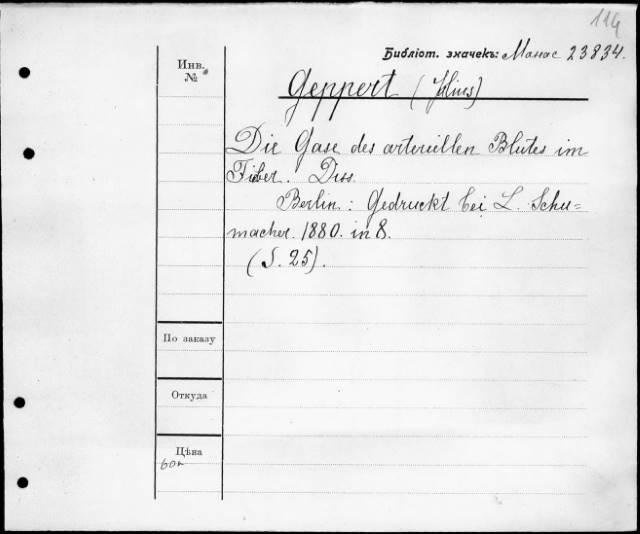 114
Библіот. значекъ: Манас 23834.
Инв.
№
Geppert (Julius)
Die Gase des arteriellen Blutes im
Fieber. Diss.
Berlin: Gedruckt bei L. Schu=
macher. 1880. in 8.
(S. 25).
По заказу
Откуда
Цѣна
60к